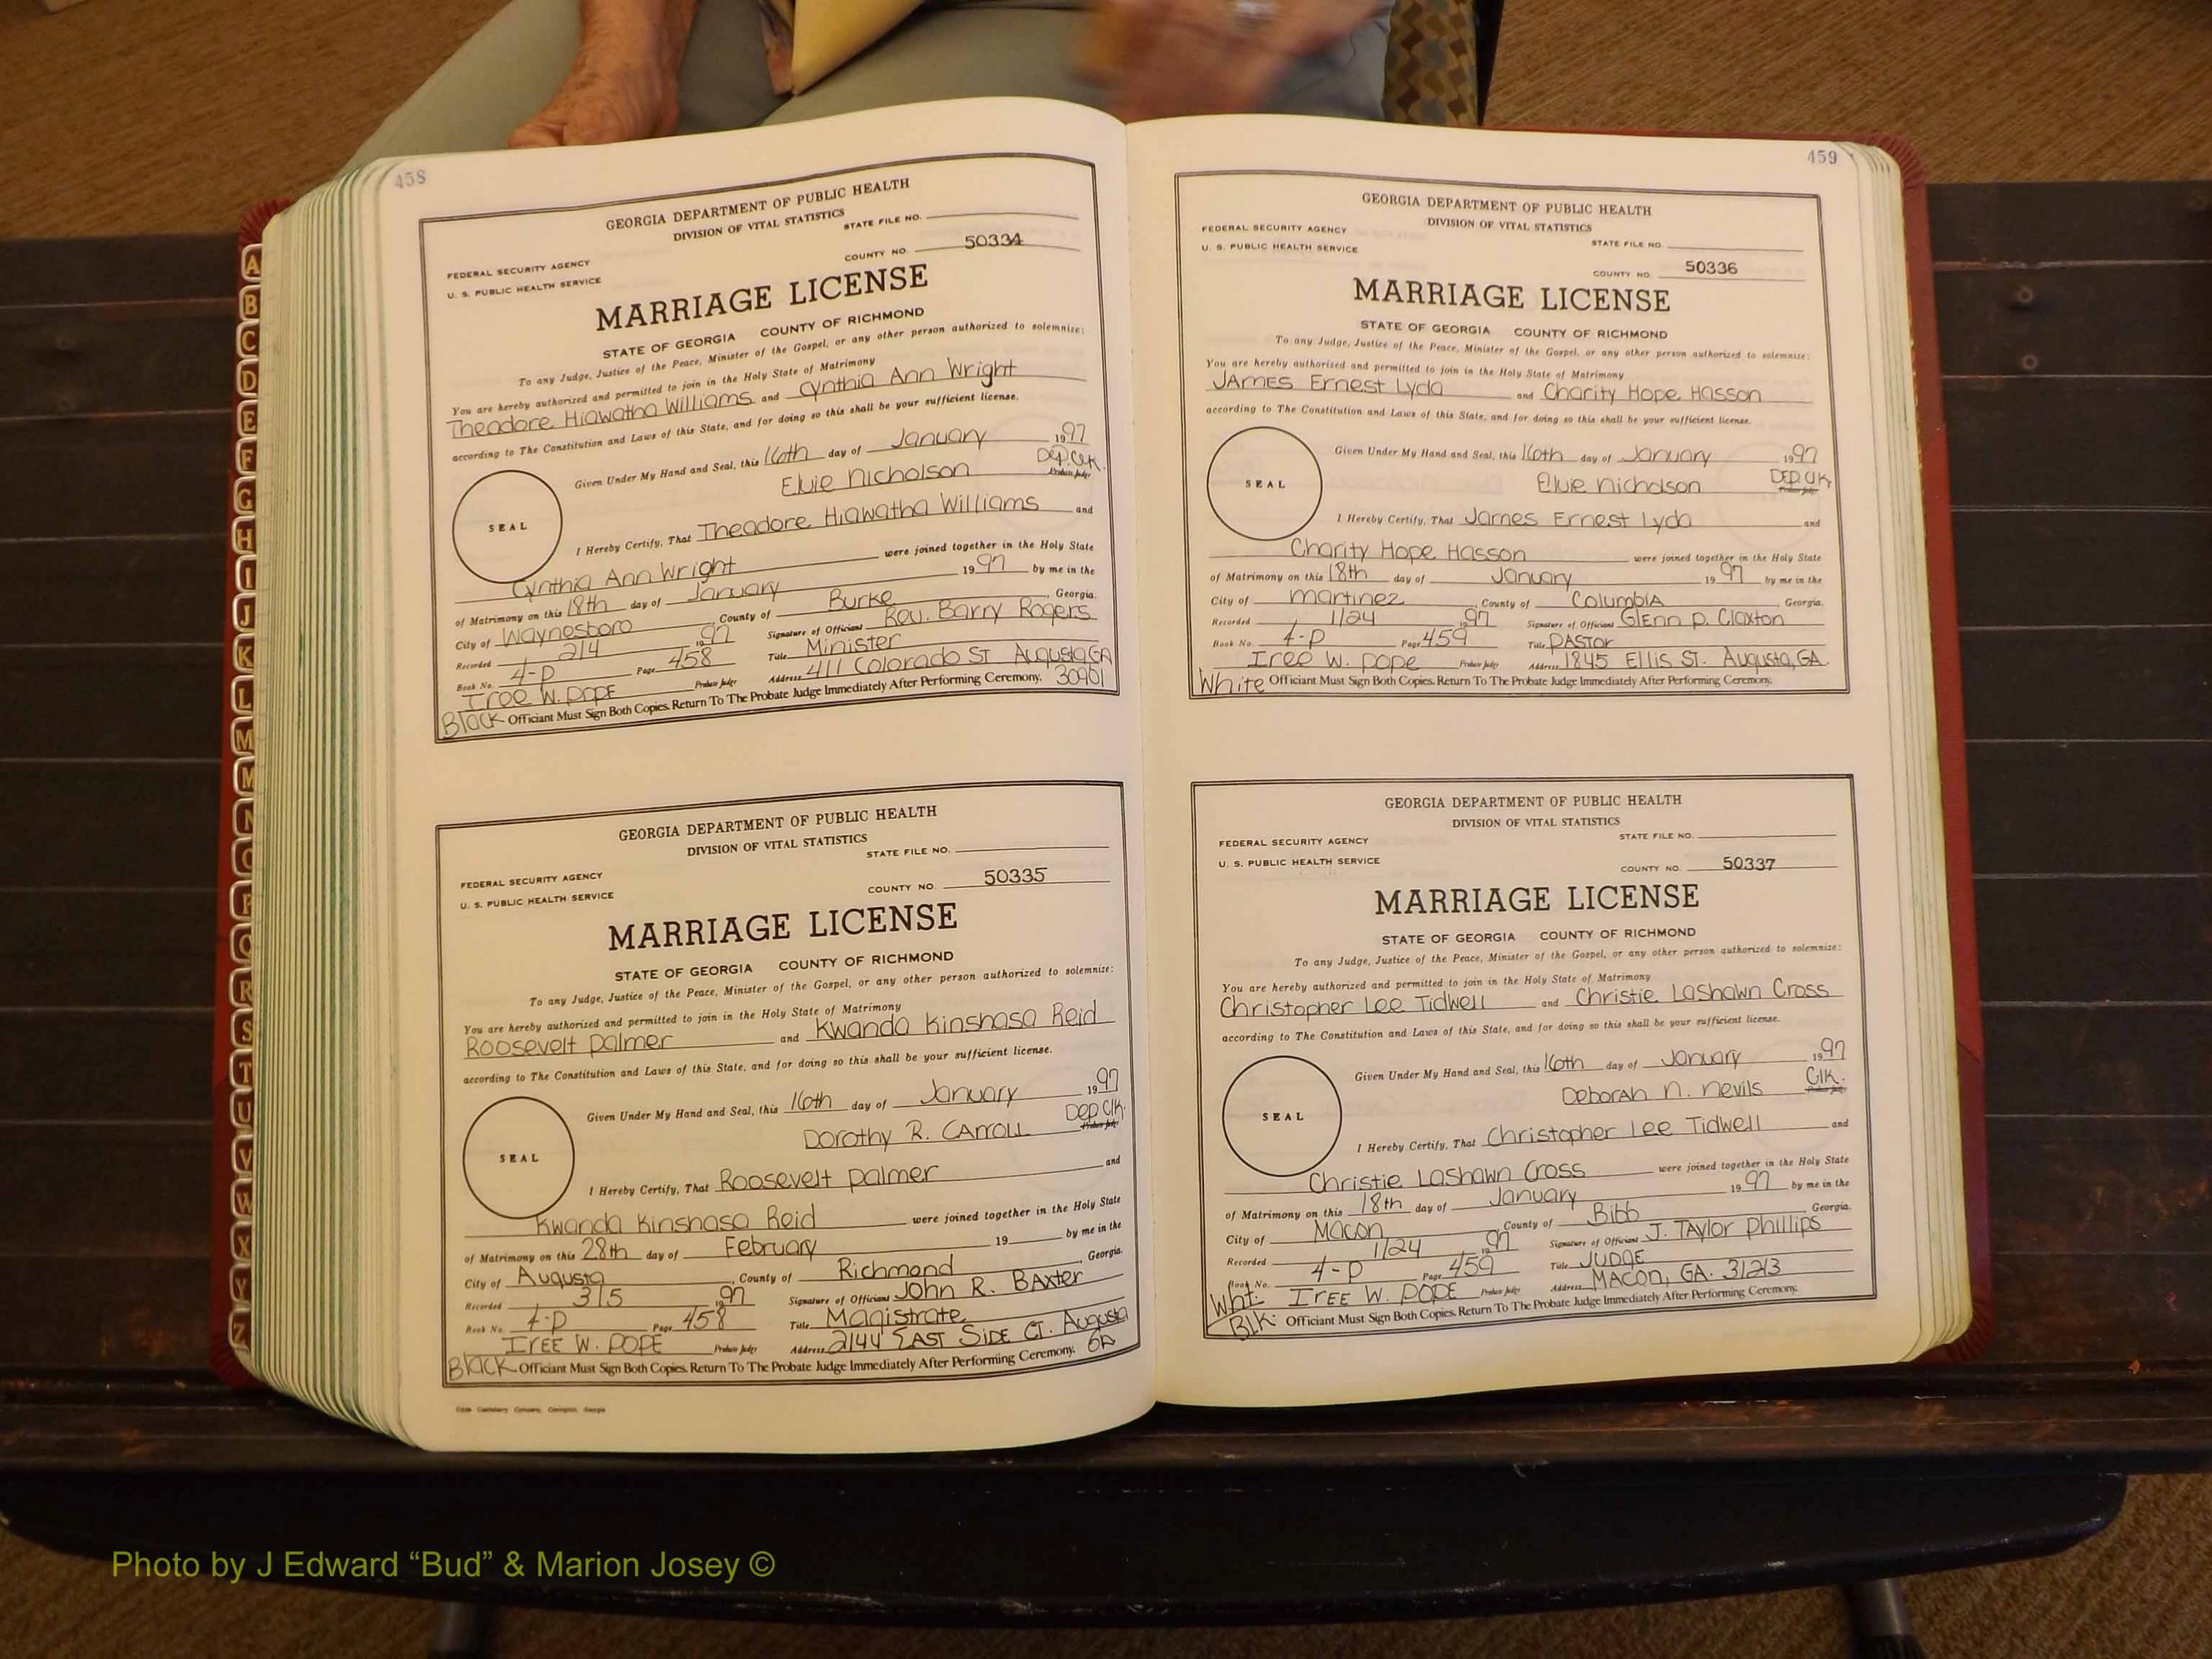 458
GEORGIA DEPARTMENT OF PUBLIC HEALTH
DIVISION OF VITAL STATISTICS
STATE FILE NO.
COUNTY NO. 50334
FEDERAL SECURITY AGENCY
U. S. PUBLIC HEALTH SERVICE
MARRIAGE LICENSE
STATE OF GEORGIA COUNTY OF RICHMOND
To any Judge, Justice of the Peace, Minister of the Gospel, or any other person authorized to solemnize:
You are hereby authorized and permitted to join in the Holy State of Matrimony
Theodore Hiawatha Williams and Cynthia Ann Wright
according to The Constitution and Laws of this State, and for doing so this shall be your sufficient license.
Given Under My Hand and Seal, this 16th day of January 1997
Elvie Nicholson Dep. Clk. Probate Judge
SEAL
I Hereby Certify, That Theadore Hiawatha Williams and
Cynthia Ann Wright were joined together in the Holy State
of Matrimony on this 18th day of January 1997 by me in the
City of Waynesboro, County of Burke, Georgia.
Recorded 2/4 1997 Signature of Officiant Rev. Barry Rogers
Book No. 4-P Page 458 Title Minister
Iree W. Pope Probate Judge Address 411 Colorado St Augusta, GA 30901
Black Officiant Must Sign Both Copies. Return To The Probate Judge Immediately After Performing Ceremony.
GEORGIA DEPARTMENT OF PUBLIC HEALTH
DIVISION OF VITAL STATISTICS
STATE FILE NO.
FEDERAL SECURITY AGENCY
U. S. PUBLIC HEALTH SERVICE
COUNTY NO. 50335
MARRIAGE LICENSE
STATE OF GEORGIA COUNTY OF RICHMOND
To any Judge, Justice of the Peace, Minister of the Gospel, or any other person authorized to solemnize:
You are hereby authorized and permitted to join in the Holy State of Matrimony
Roosevelt Palmer and Kwanda Kinshasa Reid
according to The Constitution and Laws of this State, and for doing so this shall be your sufficient license.
Given Under My Hand and Seal, this 16th day of January 1997
Dorothy R. Carroll Dep. Clk. Probate Judge
SEAL
I Hereby Certify, That Roosevelt Palmer and
Kwanda Kinshasa Reid were joined together in the Holy State
of Matrimony on this 28th day of February 19 by me in the
City of Augusta, County of Richmond, Georgia.
Recorded 3/5 1997 Signature of Officiant John R. Baxter
Book No. 4-P Page 458 Title Magistrate
Iree W. Pope Probate Judge Address 2144 East Side Ct. Augusta GA
Black Officiant Must Sign Both Copies. Return To The Probate Judge Immediately After Performing Ceremony.
Castleberry Company, Covington, Georgia
459
GEORGIA DEPARTMENT OF PUBLIC HEALTH
DIVISION OF VITAL STATISTICS
FEDERAL SECURITY AGENCY
U. S. PUBLIC HEALTH SERVICE
STATE FILE NO.
COUNTY NO. 50336
MARRIAGE LICENSE
STATE OF GEORGIA COUNTY OF RICHMOND
To any Judge, Justice of the Peace, Minister of the Gospel, or any other person authorized to solemnize:
You are hereby authorized and permitted to join in the Holy State of Matrimony
James Ernest Lyda and Charity Hope Hasson
according to The Constitution and Laws of this State, and for doing so this shall be your sufficient license.
Given Under My Hand and Seal, this 16th day of January 1997
Elvie Nicholson Dep. Clk. Probate Judge
SEAL
I Hereby Certify, That James Ernest Lyda and
Charity Hope Hasson were joined together in the Holy State
of Matrimony on this 18th day of January 1997 by me in the
City of Martinez, County of Columbia Georgia.
Recorded 1/24 1997 Signature of Officiant Glenn P. Claxton
Book No. 4-P Page 459 Title Pastor
Iree W. Pope Probate Judge Address 1845 Ellis St. Augusta, GA.
White Officiant Must Sign Both Copies. Return To The Probate Judge Immediately After Performing Ceremony.
GEORGIA DEPARTMENT OF PUBLIC HEALTH
DIVISION OF VITAL STATISTICS
STATE FILE NO.
FEDERAL SECURITY AGENCY
U. S. PUBLIC HEALTH SERVICE
COUNTY NO. 50337
MARRIAGE LICENSE
STATE OF GEORGIA COUNTY OF RICHMOND
To any Judge, Justice of the Peace, Minister of the Gospel, or any other person authorized to solemnize:
You are hereby authorized and permitted to join in the Holy State of Matrimony
Christopher Lee Tidwell and Christie Lashawn Cross
according to The Constitution and Laws of this State, and for doing so this shall be your sufficient license.
Given Under My Hand and Seal, this 16th day of January 1997
Deborah N. Nevils Clk. Probate Judge
SEAL
I Hereby Certify, That Christopher Lee Tidwell and
Christie Lashawn Cross were joined together in the Holy State
of Matrimony on this 18th day of January 1997 by me in the
City of Macon, County of Bibb Georgia.
Recorded 1/24 1997 Signature of Officiant J. Taylor Phillips
Book No. 4-P Page 459 Title Judge
Iree W. Pope Probate Judge Address Macon, GA. 31213
Wht: Blk: Officiant Must Sign Both Copies. Return To The Probate Judge Immediately After Performing Ceremony.
A
B
C
D
E
F
G
H
I
J
K
L
M
M
N
O
P
Q
R
S
T
U
V
W
X
Y
Z
Photo by J Edward “Bud” & Marion Josey ©